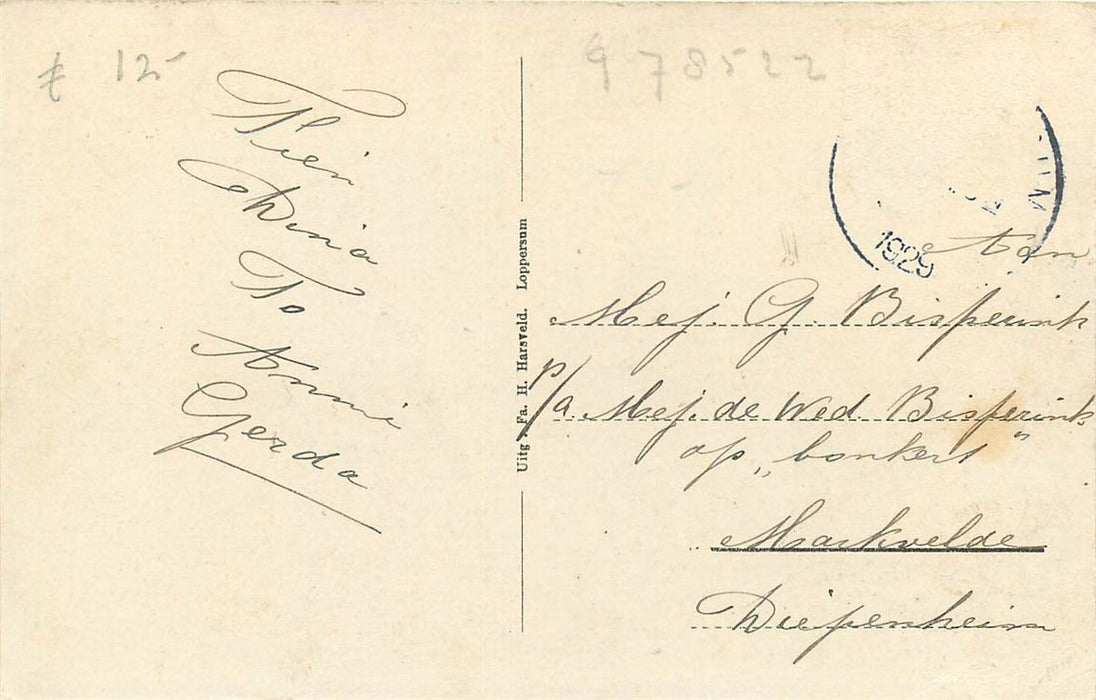 £ 12-
978522
Tien
Dina
To
Annie
Gerda
Uitg. Fa. H. Harsveld. Loppersum
1929
Aan
Mej. G. Bisperink
p/a. Mej. de Wed. Bisperink
op „bonkert"
Markvelde
Diepenheim